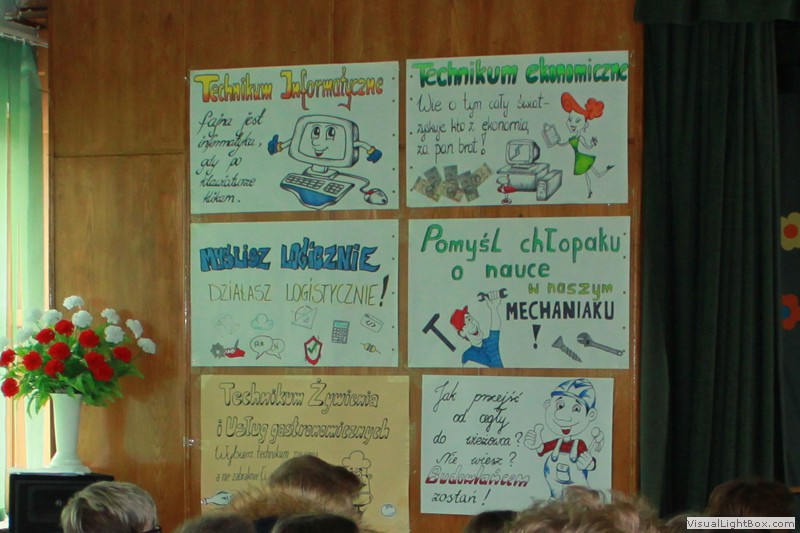 Technikum Informatyczne
fajna jest
informatyka,
gdy po
klawiaturze
klikam.
Technikum ekonomiczne
Wie o tym cały świat-
zyskuje kto z ekonomią
za pan brat!
MYŚLISZ LOGICZNIE
DZIAŁASZ LOGISTYCZNIE!
POMYŚL chłopaku
o nauce
w naszym
MECHANIAKU
!
Technikum Żywienia
i Usług gastronomicznych
Wybierz technikum
a nie
Jak przejść
od cegły
do wieżowca?
Nie wiesz?
Budowlańcem
zostań!
VisualLightBox.com